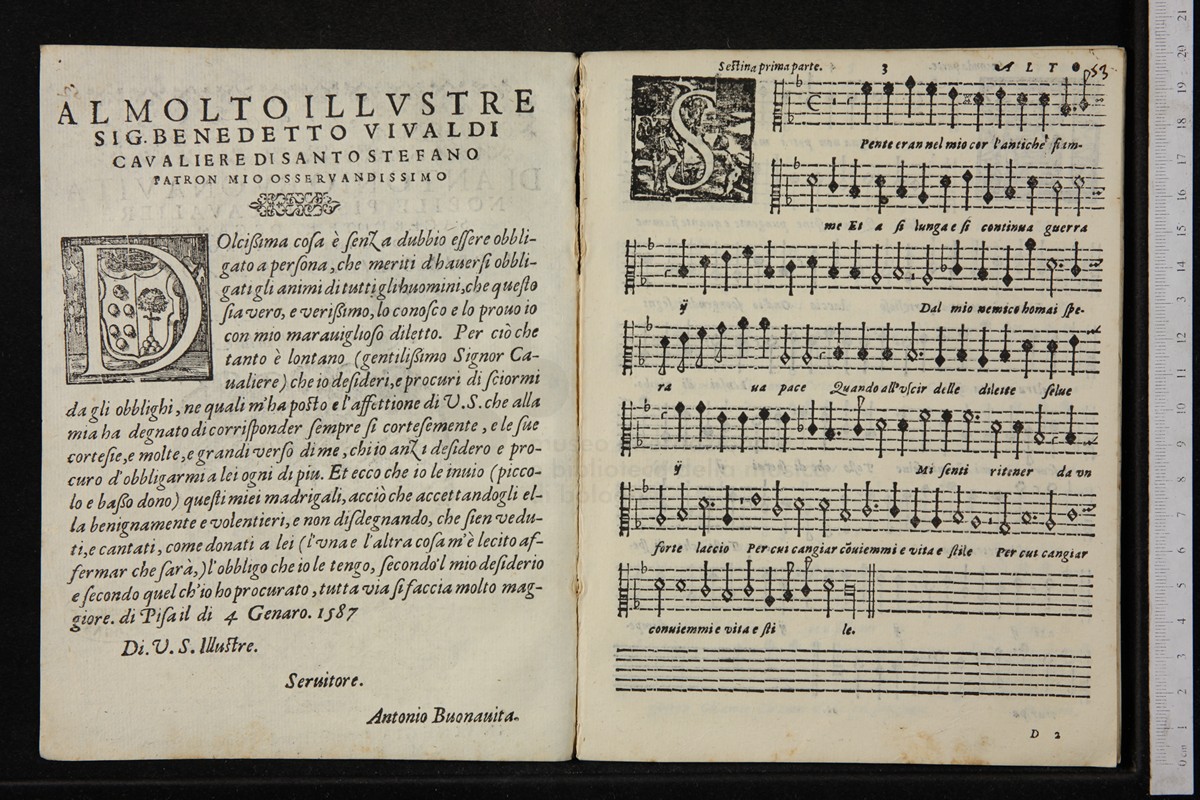 AL MOLTO ILLVSTRE
SIG. BENEDETTO VIVALDI
CAVALIERE DI SANTO STEFANO
PATRON MIO OSSERVANDISSIMO
DOlcißima cosa è senza dubbio essere obbli-
gato a persona, che meriti d'hauersi obbli-
gati gli animi di tutti gli huomini, che questo
sia vero, e verißimo, lo conosco e lo prouo io
con mio marauiglioso diletto. Per ciò che
tanto è lontano (gentilißimo Signor Ca-
ualiere) che io desideri, e procuri di sciormi
da gli obblighi, ne quali m'ha posto e l'affettione di V. S. che alla
mia ha degnato di corrisponder sempre si cortesemente, e le sue
cortesie, e molte, e grandi verso di me, ch'io anzi desidero e pro-
curo d'obbligarmi a lei ogni di piu. Et ecco che io le inuio (picco-
lo e basso dono) questi miei madrigali, acciò che accettandogli el-
la benignamente e volentieri, e non disdegnando, che sien vedu-
ti, e cantati, come donati a lei (l'vna e l'altra cosa m'è lecito af-
fermar che sarà,) l'obbligo che io le tengo, secondo'l mio desiderio
e secondo quel ch'io ho procurato, tutta via si faccia molto mag-
giore. di Pisa il di 4 Genaro. 1587
Di. V. S. Illustre.
Seruitore.
Antonio Buonauita.
Sestina prima parte. 3 ALTO 53
SPente eran nel mio cor l'antiche fiam-
me Et a si lunga e si continua guerra
ij Dal mio nemico homai spe-
ra ua pace Quando all'vscir delle dilette selue
ij Mi senti ritener da vn
forte laccio Per cui cangiar cōuiemmi e vita e stile Per cui cangiar
conuiemmi e vita e sti le.
D 2